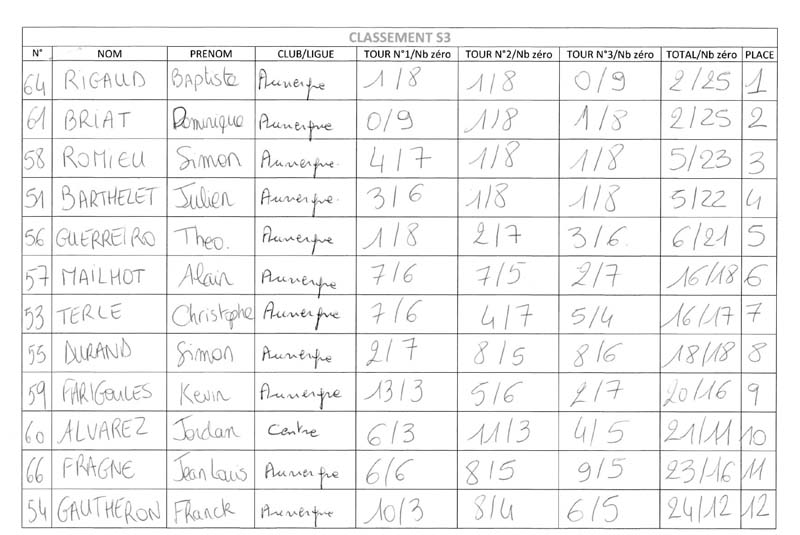 CLASSEMENT S3
N° NOM PRENOM CLUB/LIGUE TOUR N°1/Nb zéro TOUR N°2/Nb zéro TOUR N°3/Nb zéro TOTAL/Nb zéro PLACE
64 RIGAUD Baptiste Auvergne 1/8 1/8 0/9 2/25 1
61 BRIAT Dominique Auvergne 0/9 1/8 1/8 2/25 2
58 ROMIEU Simon Auvergne. 4/7 1/8 1/8 5/23 3
51 BARTHELET Julien Auvergne. 3/6 1/8 1/8 5/22 4
56 GUERREIRO Theo. Auvergne 1/8 2/7 3/6. 6/21 5
57 MAILHOT Alain Auvergne 7/6 7/5 2/7 16/18 6
53 TERLE Christophe Auvergne 7/6 4/7 5/4 16/17 7
55 DURAND Simon Auvergne 2/7 8/5 8/6 18/18 8
59 FARIGOULES Kevin Auvergne 13/3 5/6 2/7 20/16 9
60 ALVAREZ Jordan Centre 6/3 11/3 4/5 21/11 10
66 FRAGNE Jean Louis Auvergne 6/6 8/5 9/5 23/16 11
54 GAUTHERON Franck Auvergne 10/3 8/4 6/5 24/12 12